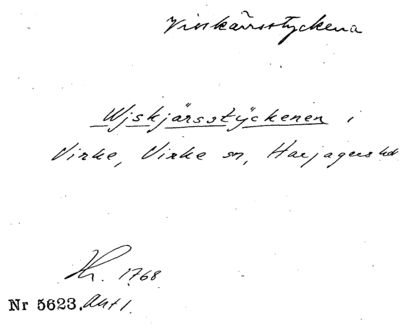 Viskärrsstyckena
Wjskjärsstÿckenen i
Virke, Virke sn, Harjagers hd
Hr. 1768
Nr 5623. Akt 1.